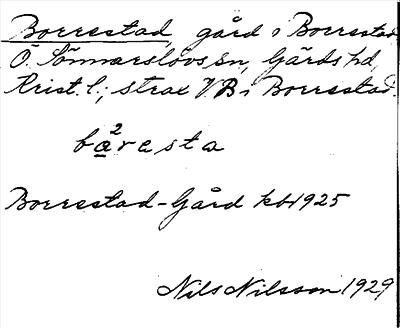 Borrestad, gård i Borrestad,
Ö. Sönnarslövs sn, Gärds hd,
Krist. l.; strax V B i Borrestad.
bå²resta
Borrestad-Gård kbl 1925
Nils Nilsson 1929